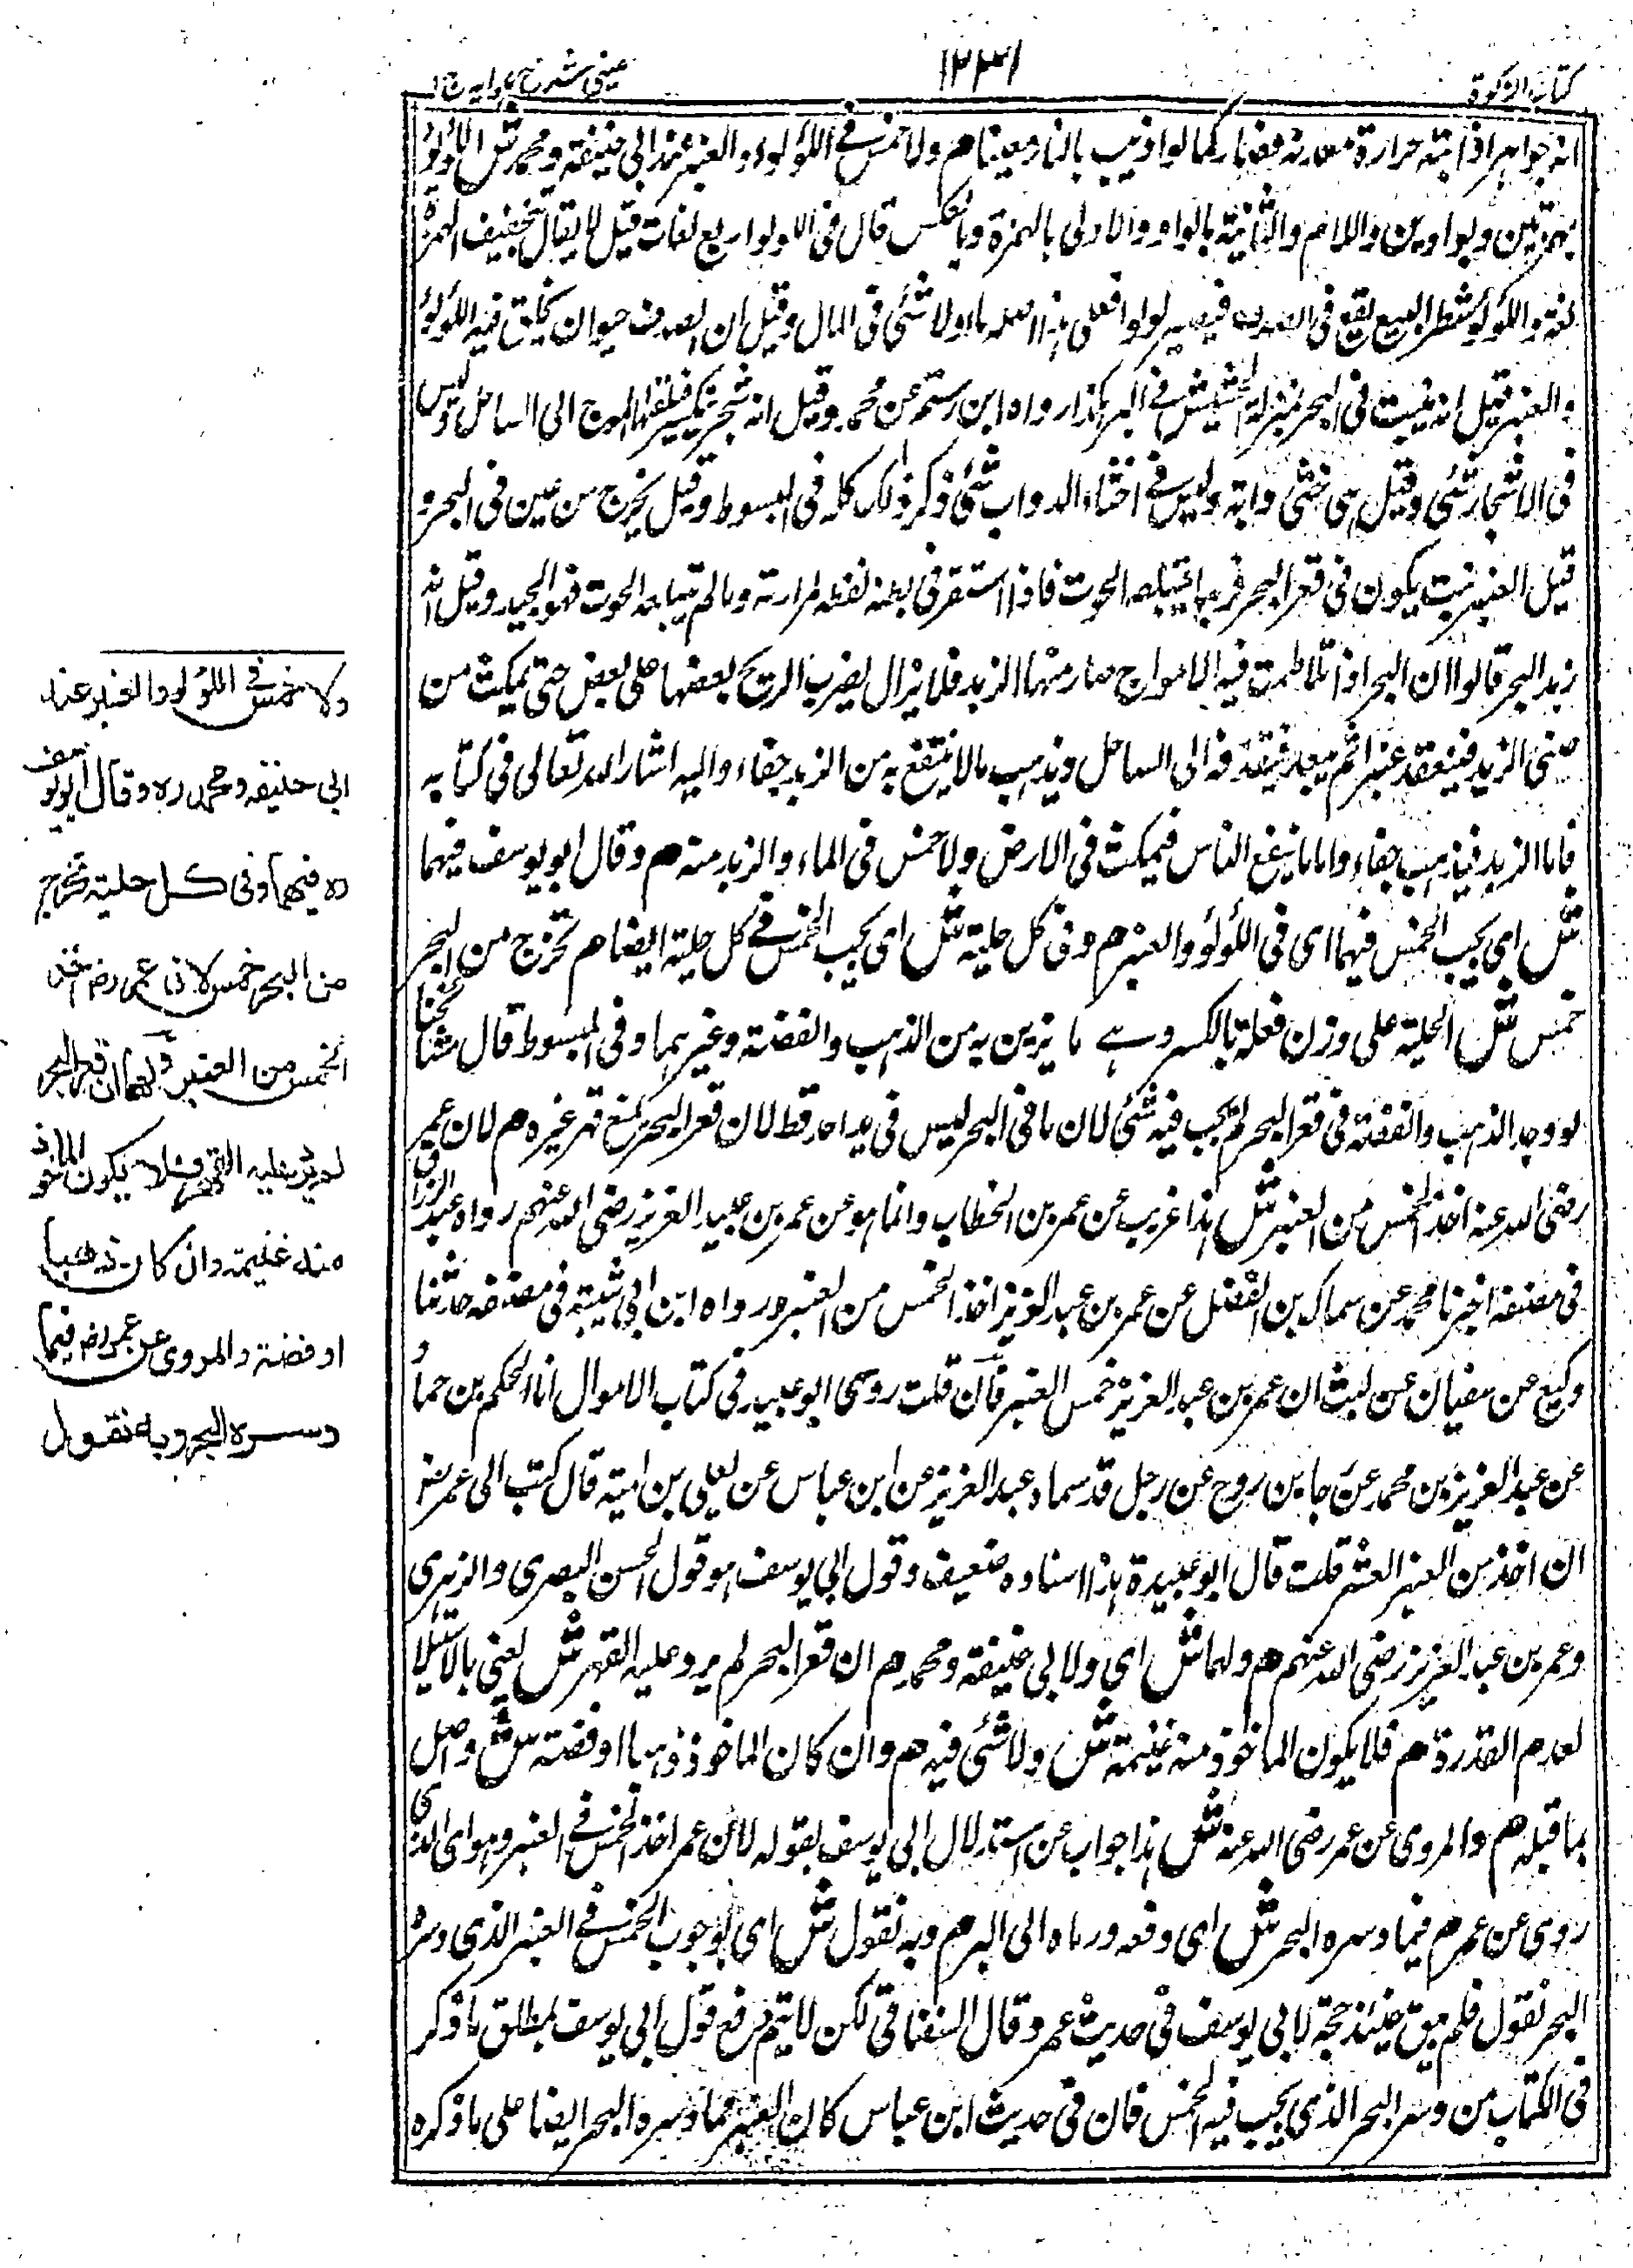 كتاب الزكوة
١٢٣١
عيني شرح هدايه ج ١
انه جواهر اذابته حرارة معدنه فصار كما لو اذيب بالنار معينا هم ولا خمس في اللؤلؤ والعنبر عند ابي حنيفة ومحمد ش اللؤلؤ
بهمزتين وبواوين واللام والثانية بالواو والاولى بالهمزة وبالعكس قال في اللولو اربع لغات قيل لا يقال بتخفيف الهمزة
لغة واللؤلؤ مطر الربيع يقع في الصدف فيصير لولوا فعلى هذا اصله ماء ولا شئ في المال وقيل ان الصدف حيوان يخلق فيه اللؤلؤ
والعنبر قيل انه ينبت في البحر بمنزلة الحشيش في البر هكذا رواه ابن رستم عن محمد وقيل انه شجر ينكسر فيلقيه الموج الى الساحل وليس
في الاشجار شئ وقيل هي خثى دابة وليس في اخثاء الدواب شئ ذكر ذلك كله في المبسوط وقيل يخرج من عين في البحر و
قيل العنبر نبت يكون في قعر البحر فربما يبتلعه الحوت فاذا استقر في بطنه لفظه لمرارته وما لم يبتلعه الحوت فهو الجيد وقيل انه
زبد البحر قالوا ان البحر اذا تلاطمت فيه الامواج صار منها الزبد فلا يزال يضرب الريح بعضها على بعض حتى يمكث من
صفى الزبد فينعقد عنبرا ثم يقذفه الى الساحل ويذهب مالا ينتفع به من الزبد جفاء واليه اشار الله تعالى في كتابه
فاما الزبد فيذهب جفاء واما ما ينفع الناس فيمكث في الارض ولا خمس في الماء والزبد منه هم وقال ابو يوسف فيهما
ش اي يجب الخمس فيهما اي في اللؤلؤ والعنبر هم وفي كل حلية ش اي يجب الخمس في كل حلية ايضا هم تخرج من البحر
خمس ش الحلية على وزن فعلة بالكسر وهي ما يزين به من الذهب والفضة وغيرهما وفي المبسوط قال مشائخنا
لو وجد الذهب والفضة في قعر البحر لم يجب فيه شئ لان ما في البحر ليس في يد احد قط لان قعر البحر يمنع قهر غيره هم لان عمر
رضى الله عنه اخذ الخمس من العنبر ش هذا غريب عن عمر بن الخطاب وانما هو عن عمر بن عبد العزيز رضى الله عنهم رواه عبد الرزاق
في مصنفه اخبرنا معمر عن سماك بن الفضل عن عمر بن عبد العزيز اخذ الخمس من العنبر ورواه ابن ابي شيبة في مصنفه حدثنا
وكيع عن سفيان عن ليث ان عمر بن عبد العزيز خمس العنبر فان قلت روى ابو عبيد في كتاب الاموال انا الحكم بن حماد
عن عبد العزيز بن محمد عن جابن روح عن رجل قد سماه عبد العزيز عن ابن عباس عن يعلى بن امية قال كتب الى عمر رض
ان اخذ من العنبر العشر قلت قال ابو عبيدة هذا اسناده ضعيف وقول ابي يوسف هو قول الحسن البصرى والزهرى
وعمر بن عبد العزيز رضى الله عنهم هم ولهما ش اي ولابي حنيفة ومحمد هم ان قعر البحر لم يرد عليه القهر ش يعني بالاستيلا
لعدم القدرة هم فلا يكون الماخوذ منه غنيمة ش ولا شئ فيه هم وان كان الماخوذ ذهبا او فضة ش واصل
بما قبله هم والمروى عن عمر رضى الله عنه ش هذا جواب عن استدلال ابي يوسف بقوله لان عمر اخذ الخمس في العنبر وهو اى الذى
روى عن عمر هم فيما دسره البحر ش اي دفعه ورماه الى البر هم وبه نقول ش اي بوجوب الخمس في العنبر الذى دسره
البحر نقول فلم يبق حينئذ حجة لابي يوسف في حديث عمر وقال السغناقي لكن لا يتم دفع قول ابي يوسف بمطلق ما ذكر
في الكتاب من دسر البحر الذى يجب فيه الخمس فان في حديث ابن عباس كان العنبر مما دسره البحر ايضا على ما ذكره
ولا خمس في اللؤلؤ والعنبر عند
ابي حنيفه ومحمد ره وقال ابو يوسف
ره فيهما وفى كل حلية تخرج
من البحر خمس لان عمر رض اخذ
الخمس من العنبر ولهما ان قعر البحر
لم يرد عليه القهر فلا يكون الماخوذ
منه غنيمة وان كان ذهبا
او فضة والمروى عن عمر رض فيما
دسره البحر وبه نقول